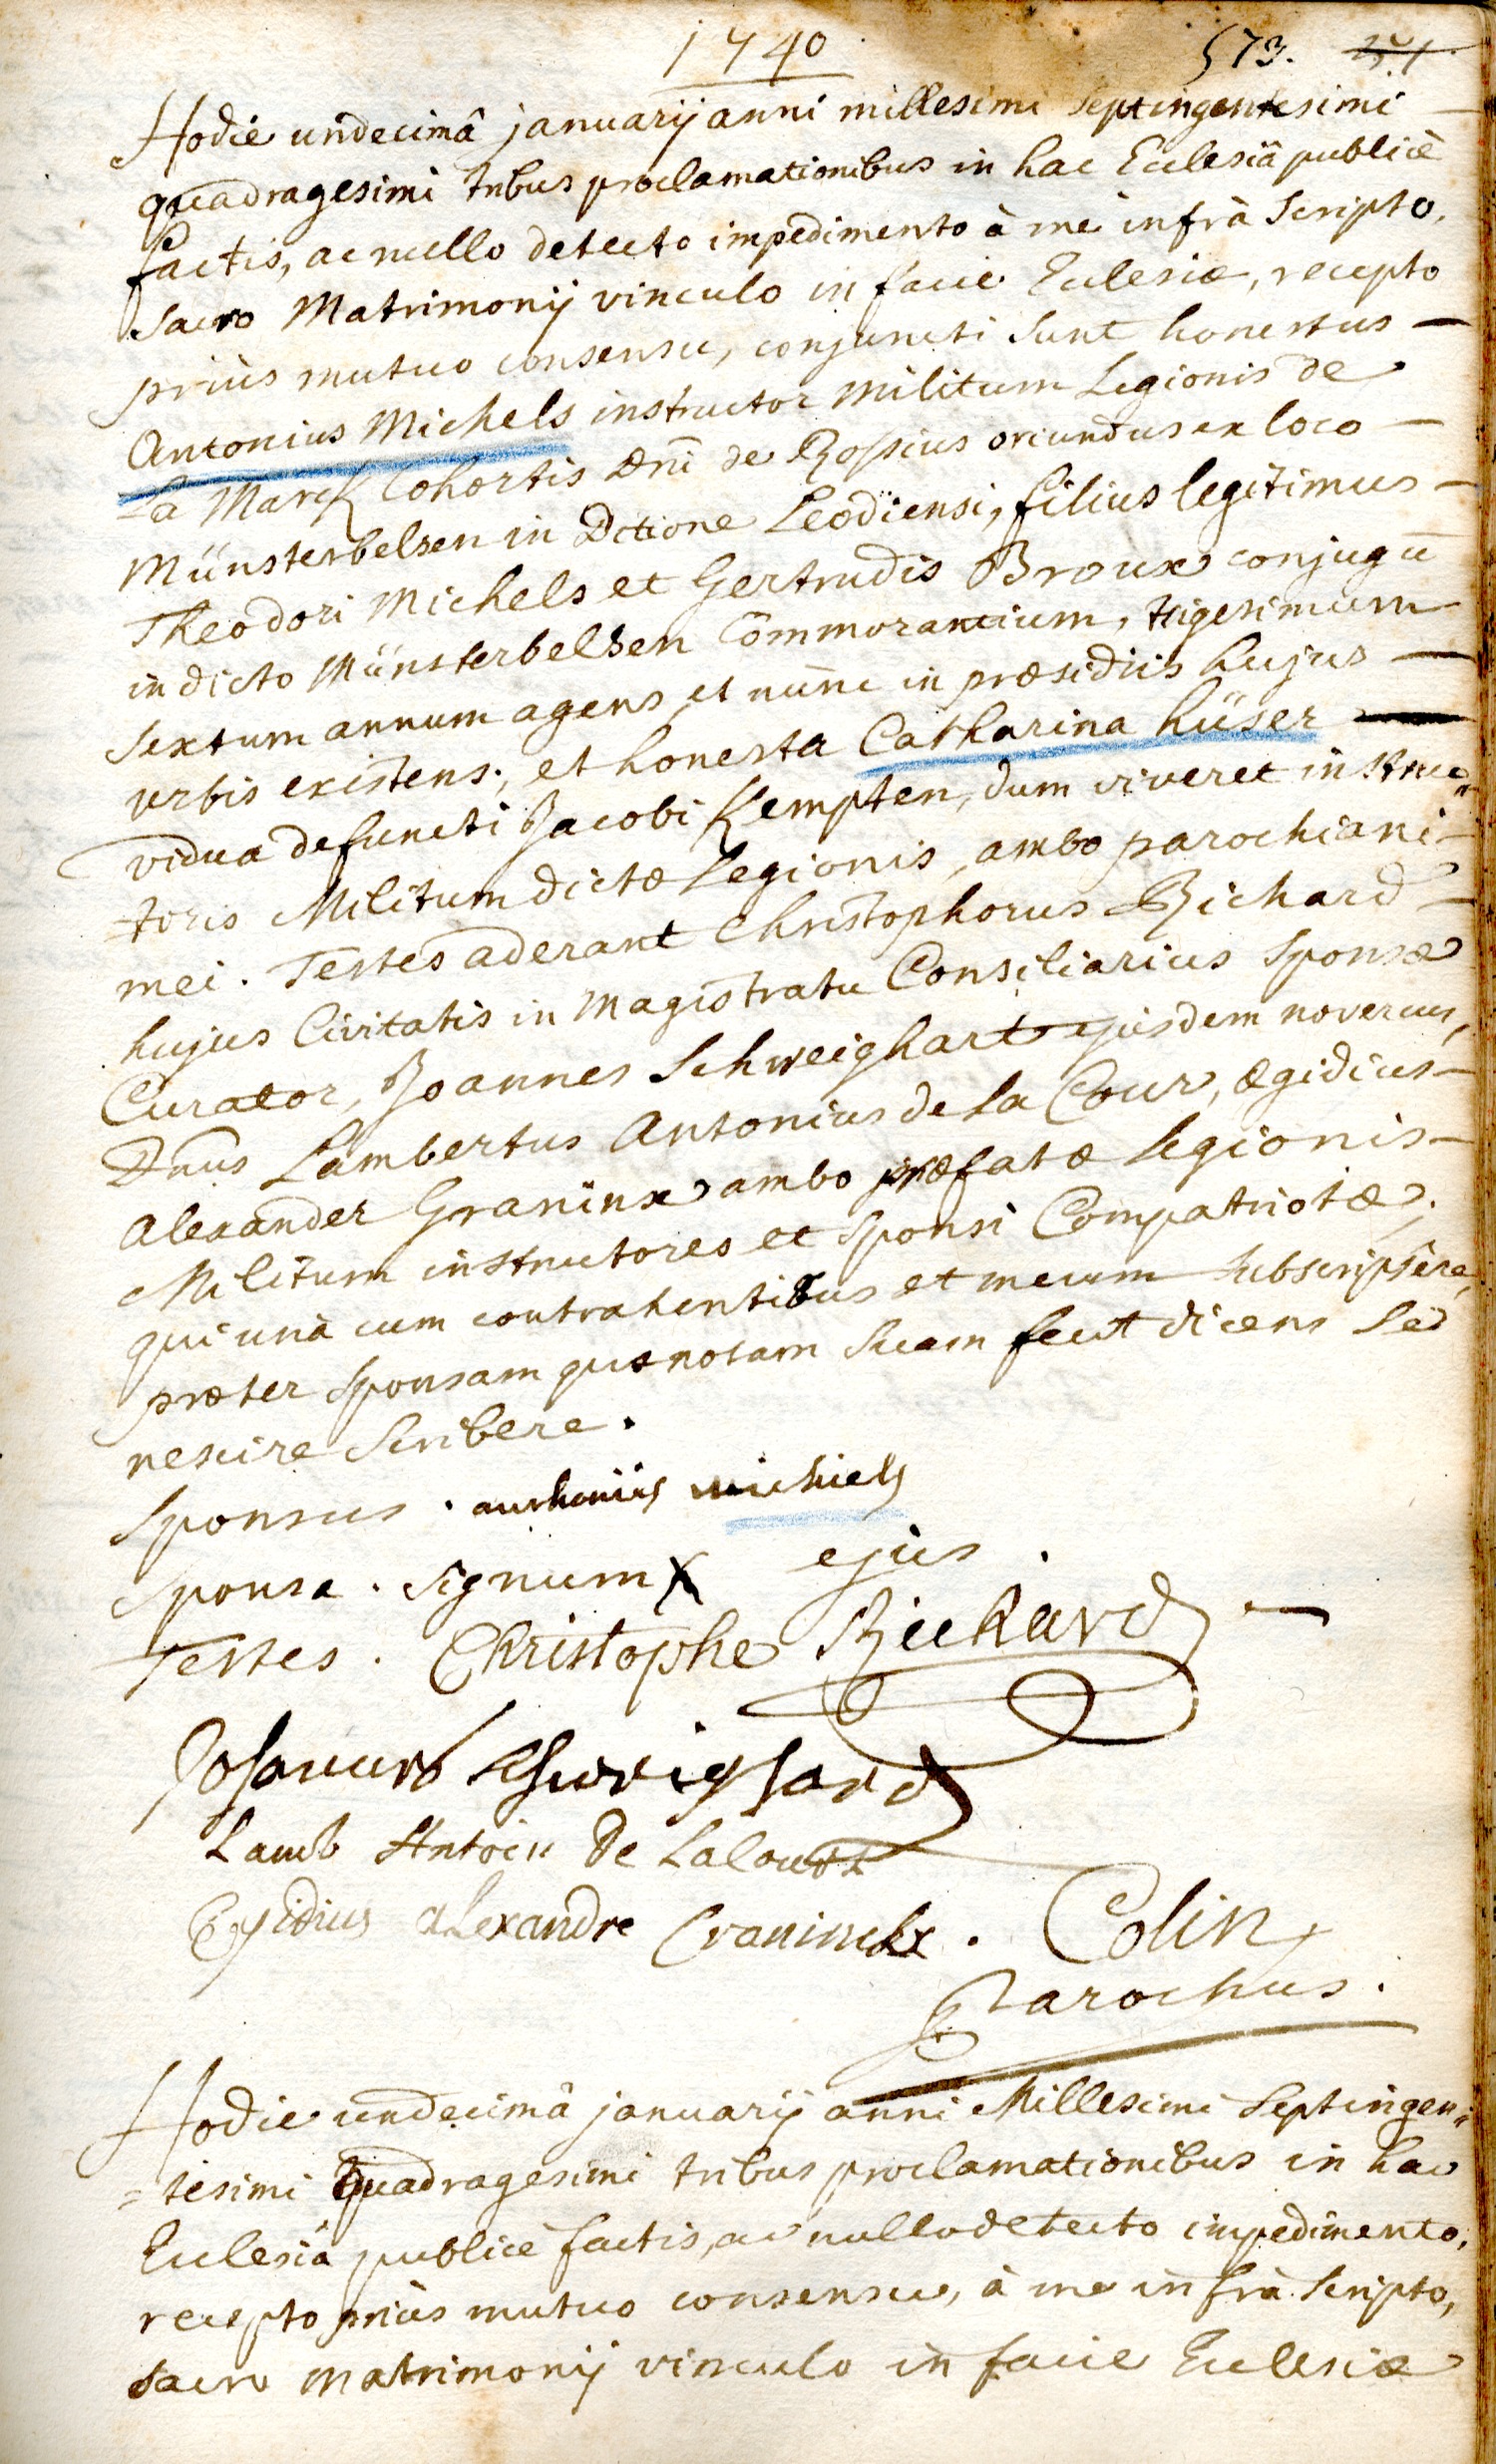 1740 573. 251
Hodie undecimâ januarij anni millesimi septingentesimi
quadragesimi tribus proclamationibus in hac Ecclesiâ publicè
factis, ac nullo detecto impedimento à me infrà scripto,
sacro Matrimonij vinculo in facie Ecclesiæ, recepto
priùs mutuo consensu, conjuncti sunt honestus
Antonius Michels instructor militum Legionis de
La Marck Cohortis Dni de Rossius oriundus ex loco
Münsterbelsen in Ditione Leodiensi, filius legitimus
Theodori Michels et Gertrudis Broux conjugū
in dicto Münsterbelsen Commorantium, trigesimum
sextum annum agens et nunc in præsidiis hujus
urbis existens; et honesta Catharina hüser
vidua defuncti Jacobi Kempten, dum viveret instruc=
=toris Militum dictæ Legionis, ambo parochiani
mei. Testes aderant Christophorus Richard
hujus Civitatis in Magistratu Consiliarius Sponsæ
Curator, Joannes Schweighart ejusdem novercus,
Dnus Lambertus Antonius de la Cour, ægidius
Alexander Graninx ambo præfatæ legionis
Militum instructores et sponsi Compatriotæ,
qui unà cum contrahentibus et mecum subscripsêre,
præter sponsam quæ notam suam fecit dicens se
nescire scribere.
Sponsus . anthoniis michiels
Sponsa . Signum X ejus .
Testes . Christophe Richard
Johannes Schweighard
Lamb Antoin De Lacourt
Egidius alexandre Craninckx . Colin
Parochus.
Hodie undecimâ januarij anni Millesimi Septingen=
=tesimi Quadragesimi tribus proclamationibus in hac
Ecclesiâ publicè factis, ac nullo detecto impedimento,
recepto priùs mutuo consensu, à me infrà scripto,
sacro Matrimonij vinculo in facie Ecclesiæ